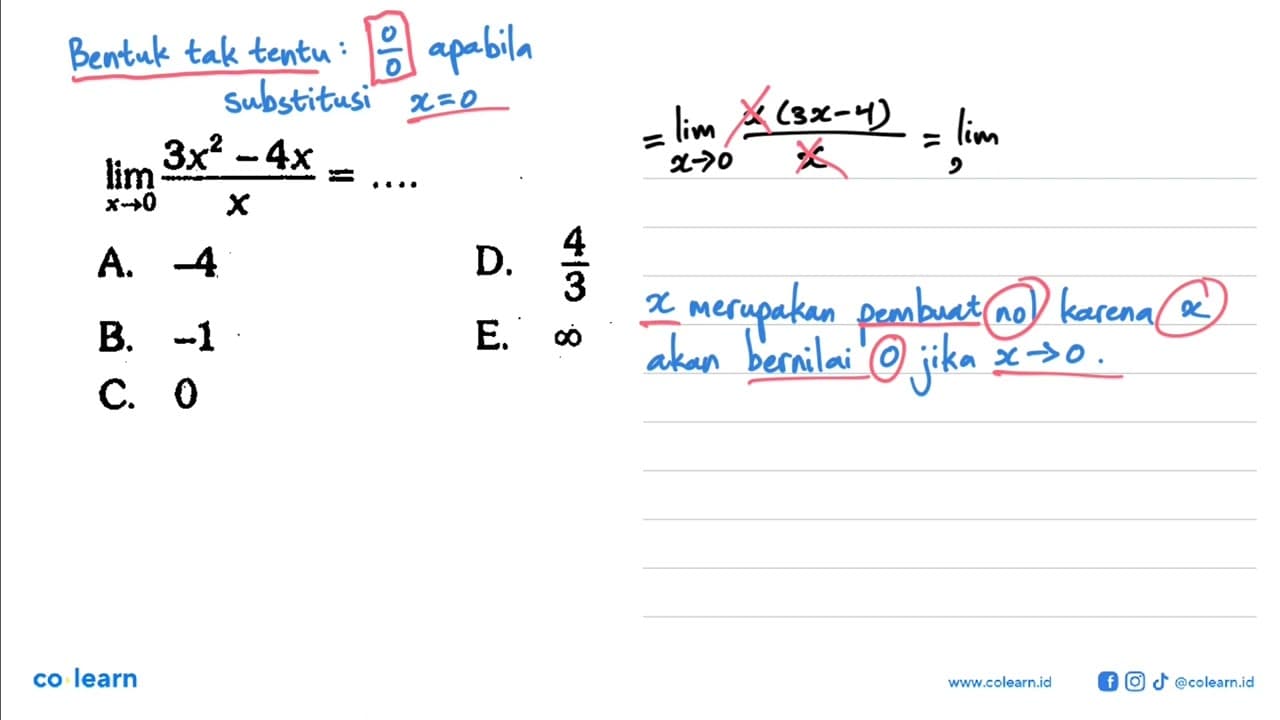 Bentuk tak tentu: 0/0 apabila
substitusi x=0
lim x→0 3x² - 4x / x = ....
A. -4
B. -1
C. 0
D. 4/3
E. ∞
= lim x→0 x (3x-4) / x = lim
x merupakan pembuat nol karena x
akan bernilai 0 jika x→0.
co learn
www.colearn.id
@colearn.id